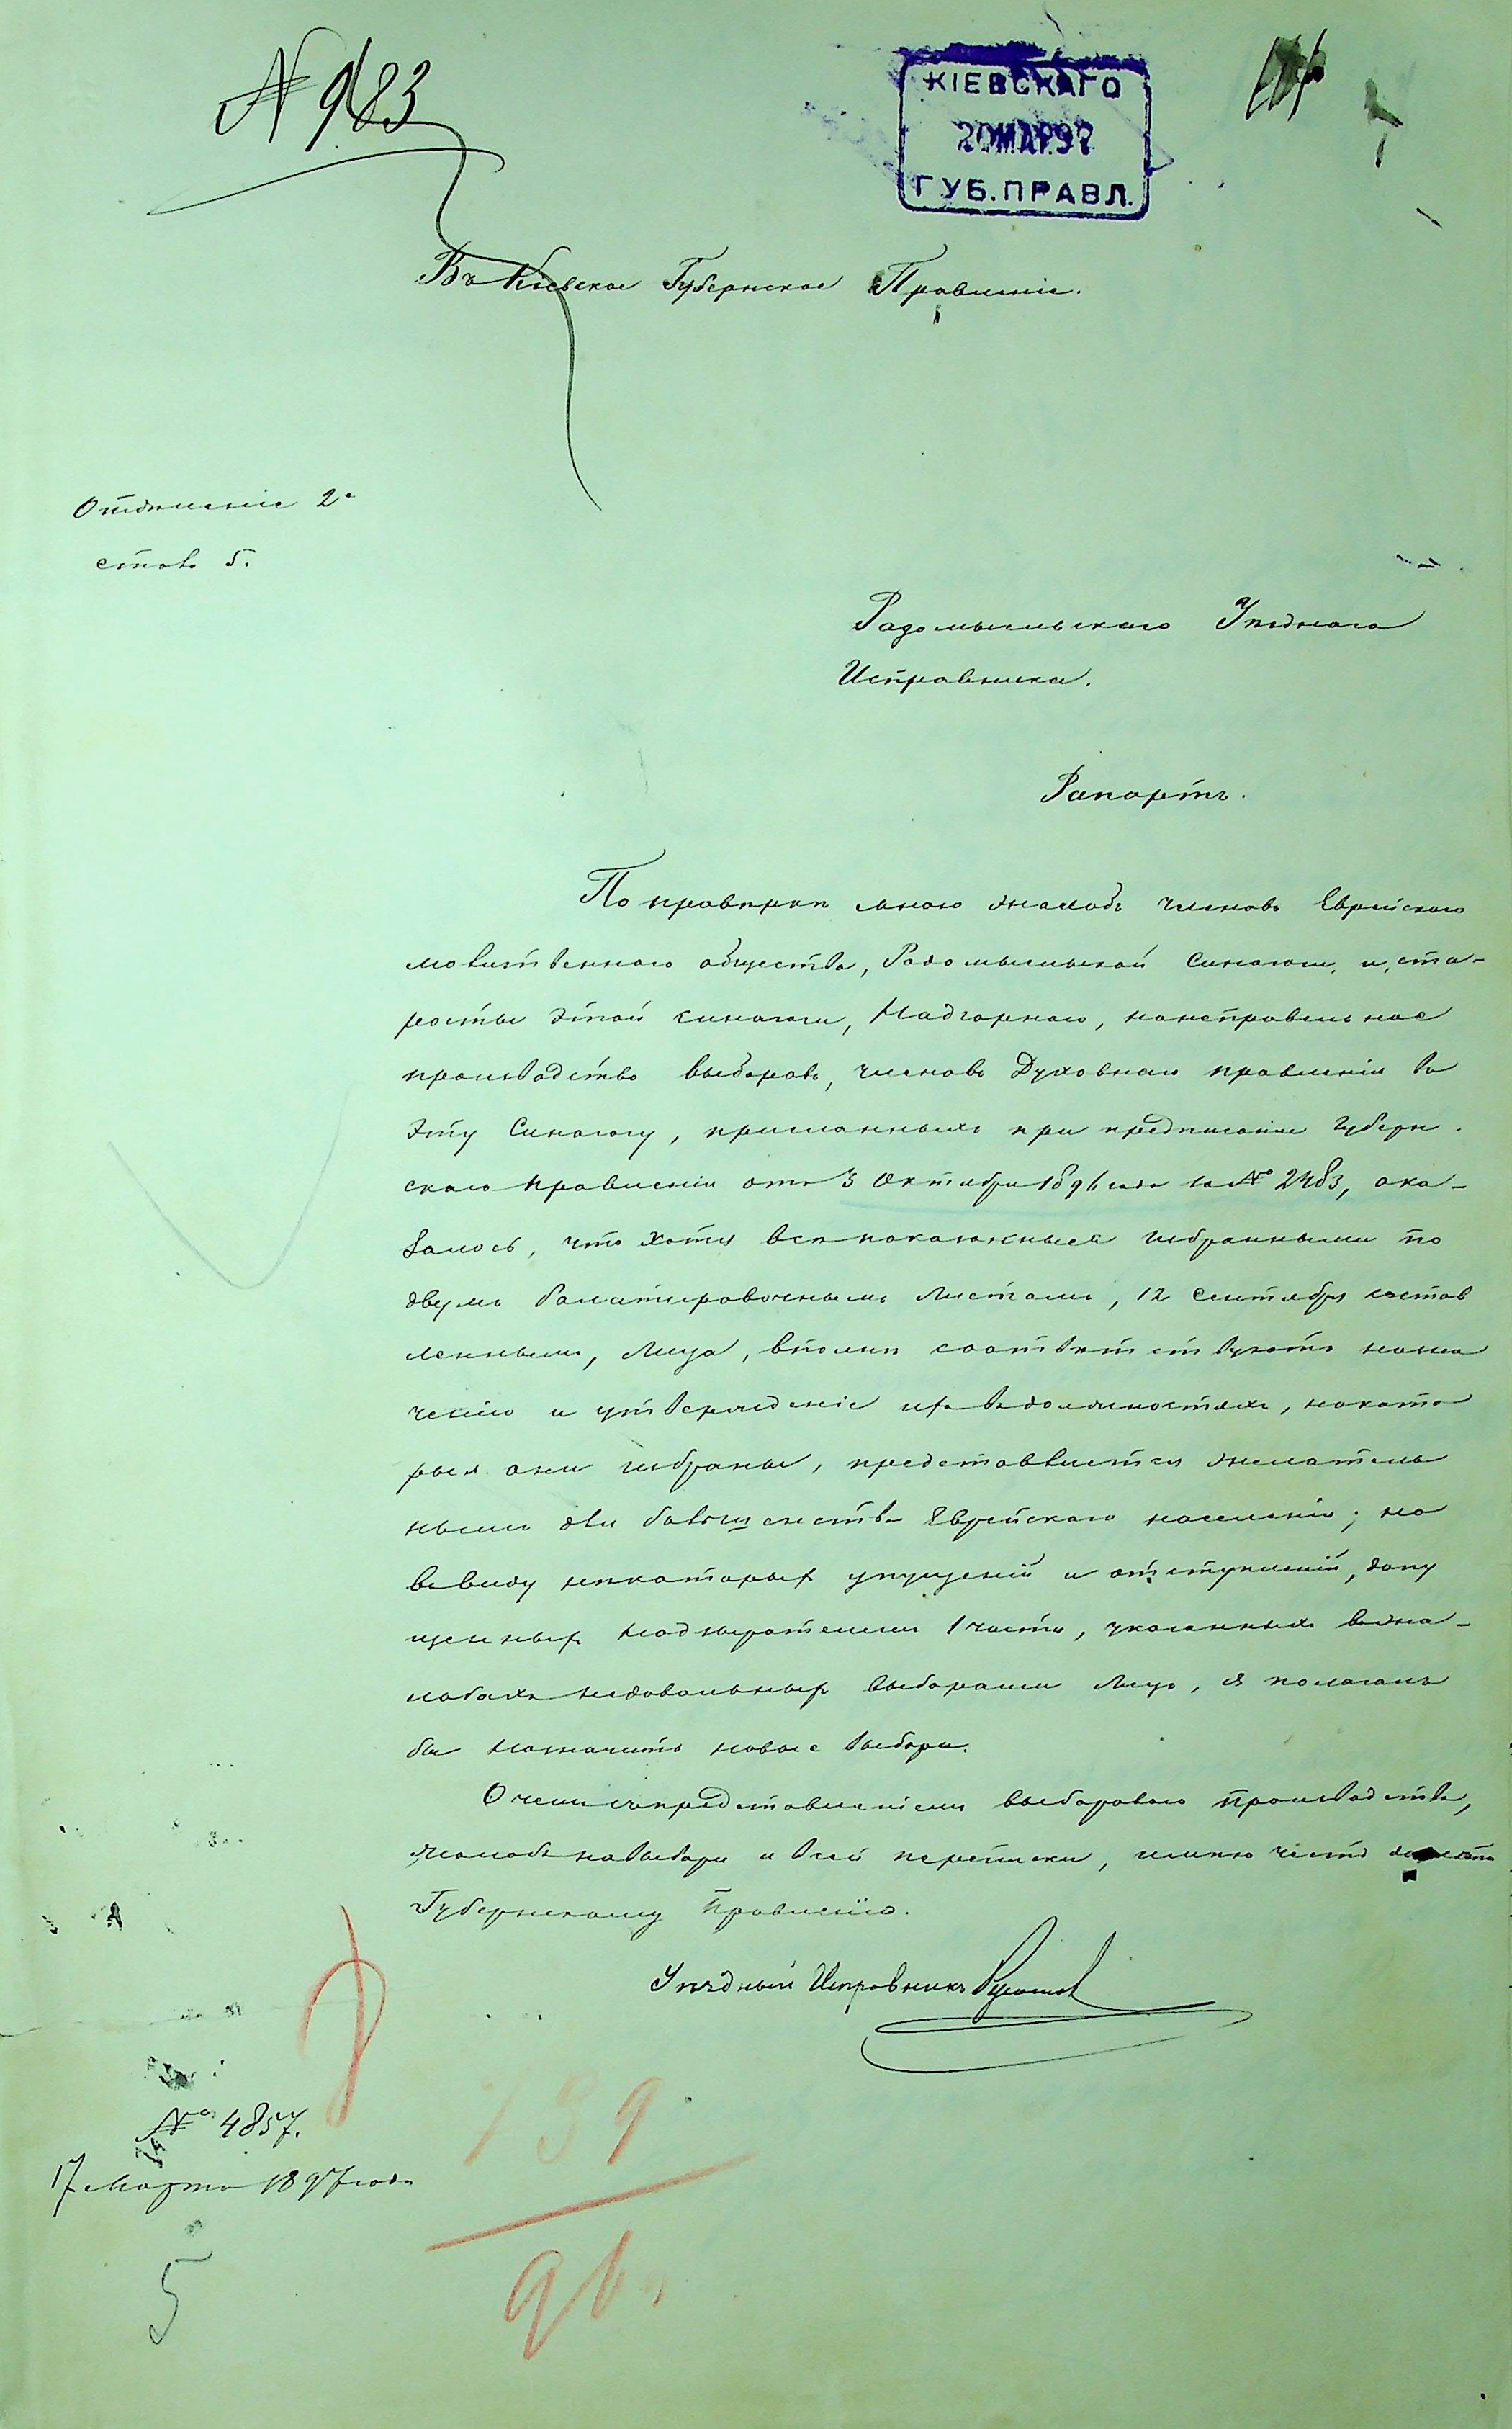 № 983
КІЕВСКАГО
20 МАР 97
ГУБ. ПРАВЛ.
Въ Кіевское Губернское Правленіе.
Отдѣленіе 2е
столъ 5.
Радомысльскаго Уѣзднаго
Исправника.
Рапортъ.
По провѣркѣ мною жалобъ членовъ Еврейскаго
молитвеннаго общества, Радомысльской Синагоги, и ста-
росты этой синагоги, Надгорнаго, на неправильное
производство выборовъ, членовъ Духовнаго правленія въ
эту Синагогу, присланныхъ при предписаніи Губерн-
скаго Правленія отъ 3 Октября 1896 года за № 2483, ока-
залось, что хотя всѣ показанные избранными по
двумъ балатировочнымъ листамъ, 12 Сентября состав
леннымъ, лица, вполнѣ соотвѣтствуютъ назна
ченію и утвержденіе ихъ въ должностяхъ, на кото
рыя они избраны, представляется желатель
нымъ для большинства Еврейскаго населенія; но
въ виду нѣкоторыхъ упущеній и отступленій, допу
щенныхъ Надзирателемъ 1 части, указанныхъ въ жа-
лобахъ недовольныхъ выборами лицъ, я полагалъ
бы назначить новые выборы.
О чемъ съ представленіемъ выборнаго производства,
жалобъ на выборы и всей переписки, имѣю честь
Губернскому Правленію.
Уѣздный Исправникъ
№ 4857.
17 Марта 1897 года
5
139
96.